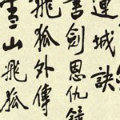 連城訣
書劍恩仇錄
飛狐外傳
雪山飛狐